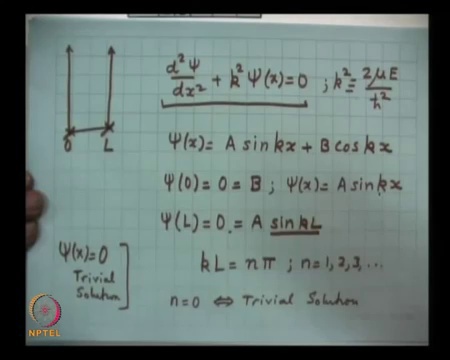 d²Ψ/dx² + k²Ψ(x)=0 ; k² ≡ 2μE/ħ²
0 L
Ψ(x)= A sin kx + B cos kx
Ψ(0)=0=B ; Ψ(x)= A sin kx
Ψ(L)=0.= A sin kL
Ψ(x)=0
Trivial
Solution
kL = nπ ; n=1,2,3,...
n=0 ⇔ Trivial Solution
NPTEL